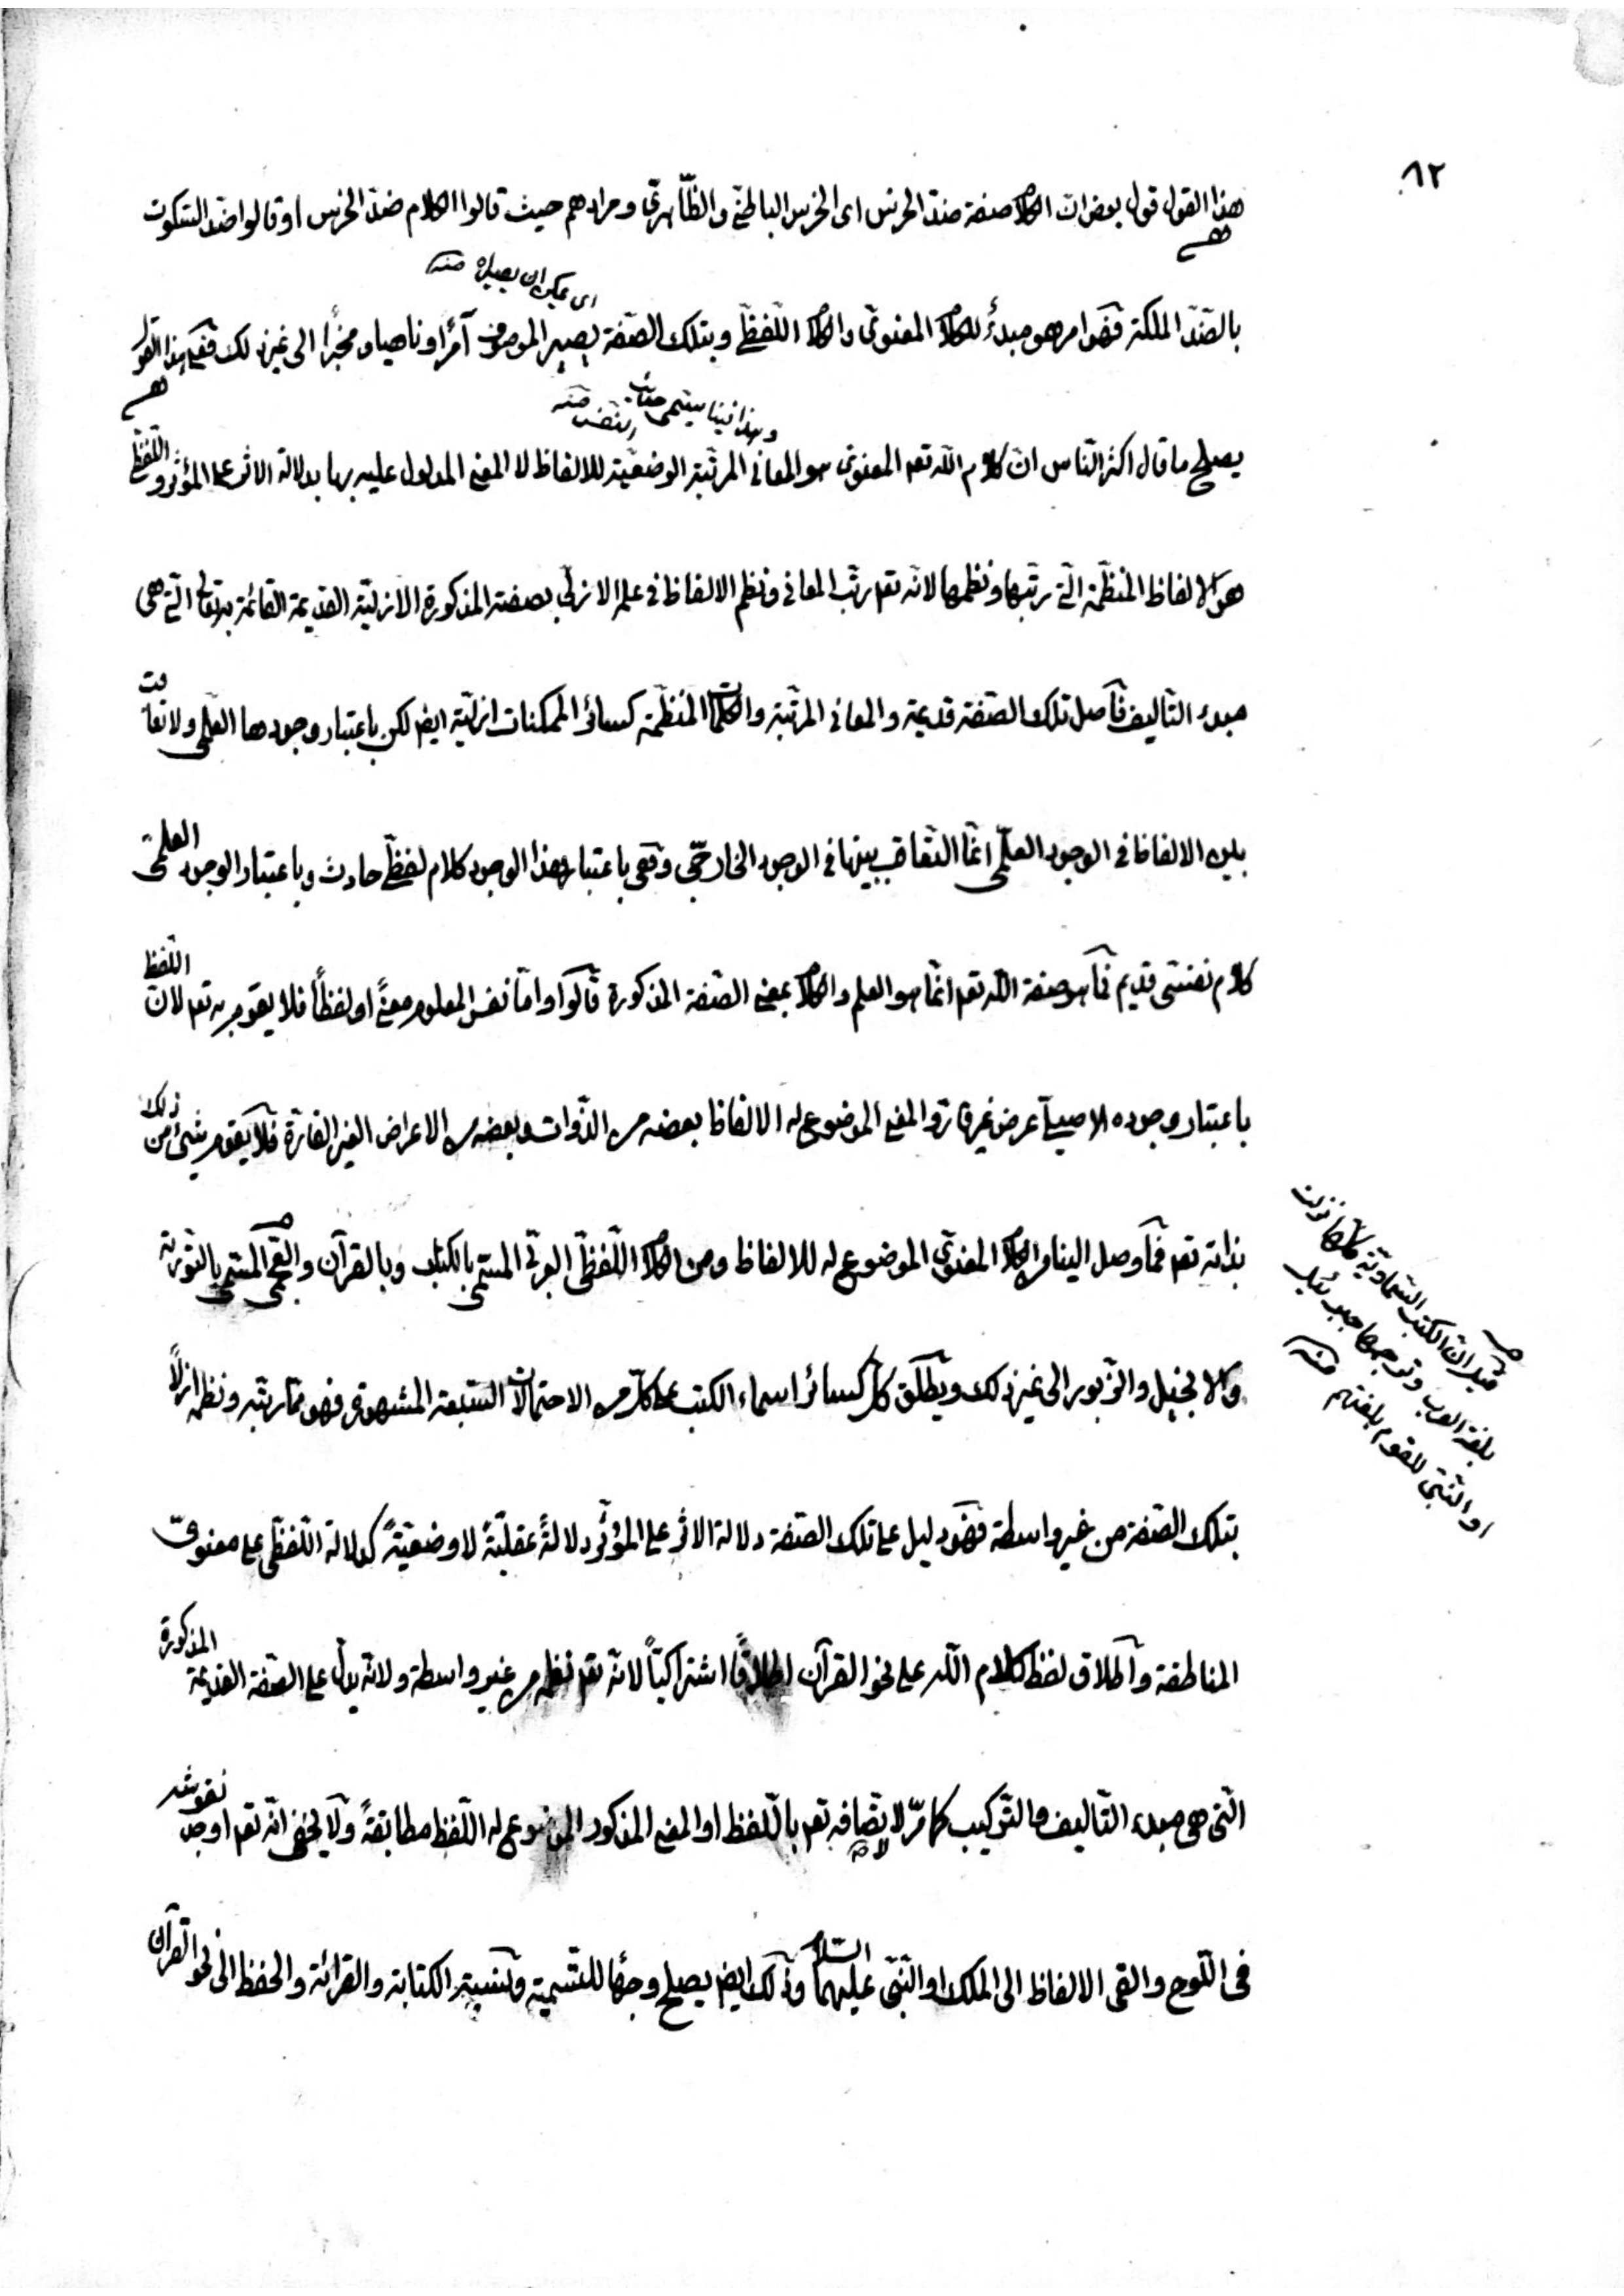 ٨٢
هذا القول قول بعض ان الكلام صفة ضدّ الخرس اى الخرس الباطنىّ والظّاهرىّ ومرادهم حيث قالوا الكلام ضدّ الخرس او قالوا ضدّ السّكوت
اى يمكن ان يصير منه
بالضّدّ الملكة فهو امر هو مبدءٌ للكلام المعنوىّ والكلام اللّفظىّ وبتلك الصّفة يصير الموصوف آمرًا وناهيا ومخبرًا الى غير ذلك فعلى هذا القول
وهذا فينا يسمى منه
يصلح ما قال اكثر النّاس انّ كلام اللّه تعم المعنوىّ هو المعانى المرتّبة الوضعيّة للالفاظ لا المعنى المدلول عليه بها بدلالة الاثر على المؤثر واللّفظىّ
هو الالفاظ المنظّمة الّتى رتّبها ونظمها لانّه تعم رتّب المعانى ونظم الالفاظ فى علمه الازلىّ بصفته المذكورة الازليّة القديمة القائمة بذاته الّتى هى
مبدء التّأليف فاصل تلك الصّفة قديمة والمعانى المرتّبة والكلمات المنظّمة كسائر الممكنات ازليّة ايض لكن باعتبار وجودها العلمىّ ولا تفاوت
بين الالفاظ فى الوجود العلمىّ انّما التّعاقب بينها فى الوجود الخارجىّ وهى باعتبار هذا الوجود كلام لفظىّ حادث وباعتبار الوجود العلمىّ
كلام نفسىّ قديم فما هو صفة اللّه تعم انّما هو العلم والكلام بمعنى الصّفة المذكورة قالوا وامّا نفس المعلوم معنىً او لفظاً فلا يقوم به تعم لانّ اللّفظ
باعتبار وجوده الاصيل عرض غير قارّ والمعنى الموضوع له الالفاظ بعضه من الذّوات وبعضه من الاعراض الغير القارّة فلا يقوم شىء من ذلك
بذاته تعم فما وصل الينا من الكلام المعنوىّ الموضوع له للالفاظ ومن الكلام اللّفظىّ العربىّ المسمّى بالكتاب وبالقرآن والعجمىّ المسمّى بالتّورية
والانجيل والزّبور الى غير ذلك ويطلق كل كسائر اسماء الكتب على كلّ من الاحتمالات السّبعة المشهورة فهو ممّا رتّبه ونظمه ازلاً
بتلك الصّفة من غير واسطة فهو دليل على تلك الصّفة دلالة الاثر على المؤثّر دلالةً عقليّةً لا وضعيّةً كدلالة اللّفظىّ على معنوىّ
المناطقة واطلاق لفظ كلام اللّه على نحو القرآن اطلاقاً اشتراكيّاً لانّه تعم نظمه من غير واسطة ولانّه يدلّ على الصّفة القديمة المذكورة
الّتى هى مبدء التّأليف والتّركيب كما مرّ لا لاتّصافه تعم باللّفظ او المعنى المذكور الموضوع له اللّفظ مطابقةً ولا يخفى انّه تعم اوجد نقوشه
فى اللّوح والقى الالفاظ الى الملك او النّبىّ عليهما السّلام وذلك ايض يصلح وجهًا للتّسمية ونسبة الكتابة والقرائة والحفظ الى نحو القرآن
قيل ان الكتب السّماويّة كلها نزلت
بلغة العرب وترجمها جبرئيل
او النّبىّ للقوم بلغتهم منه